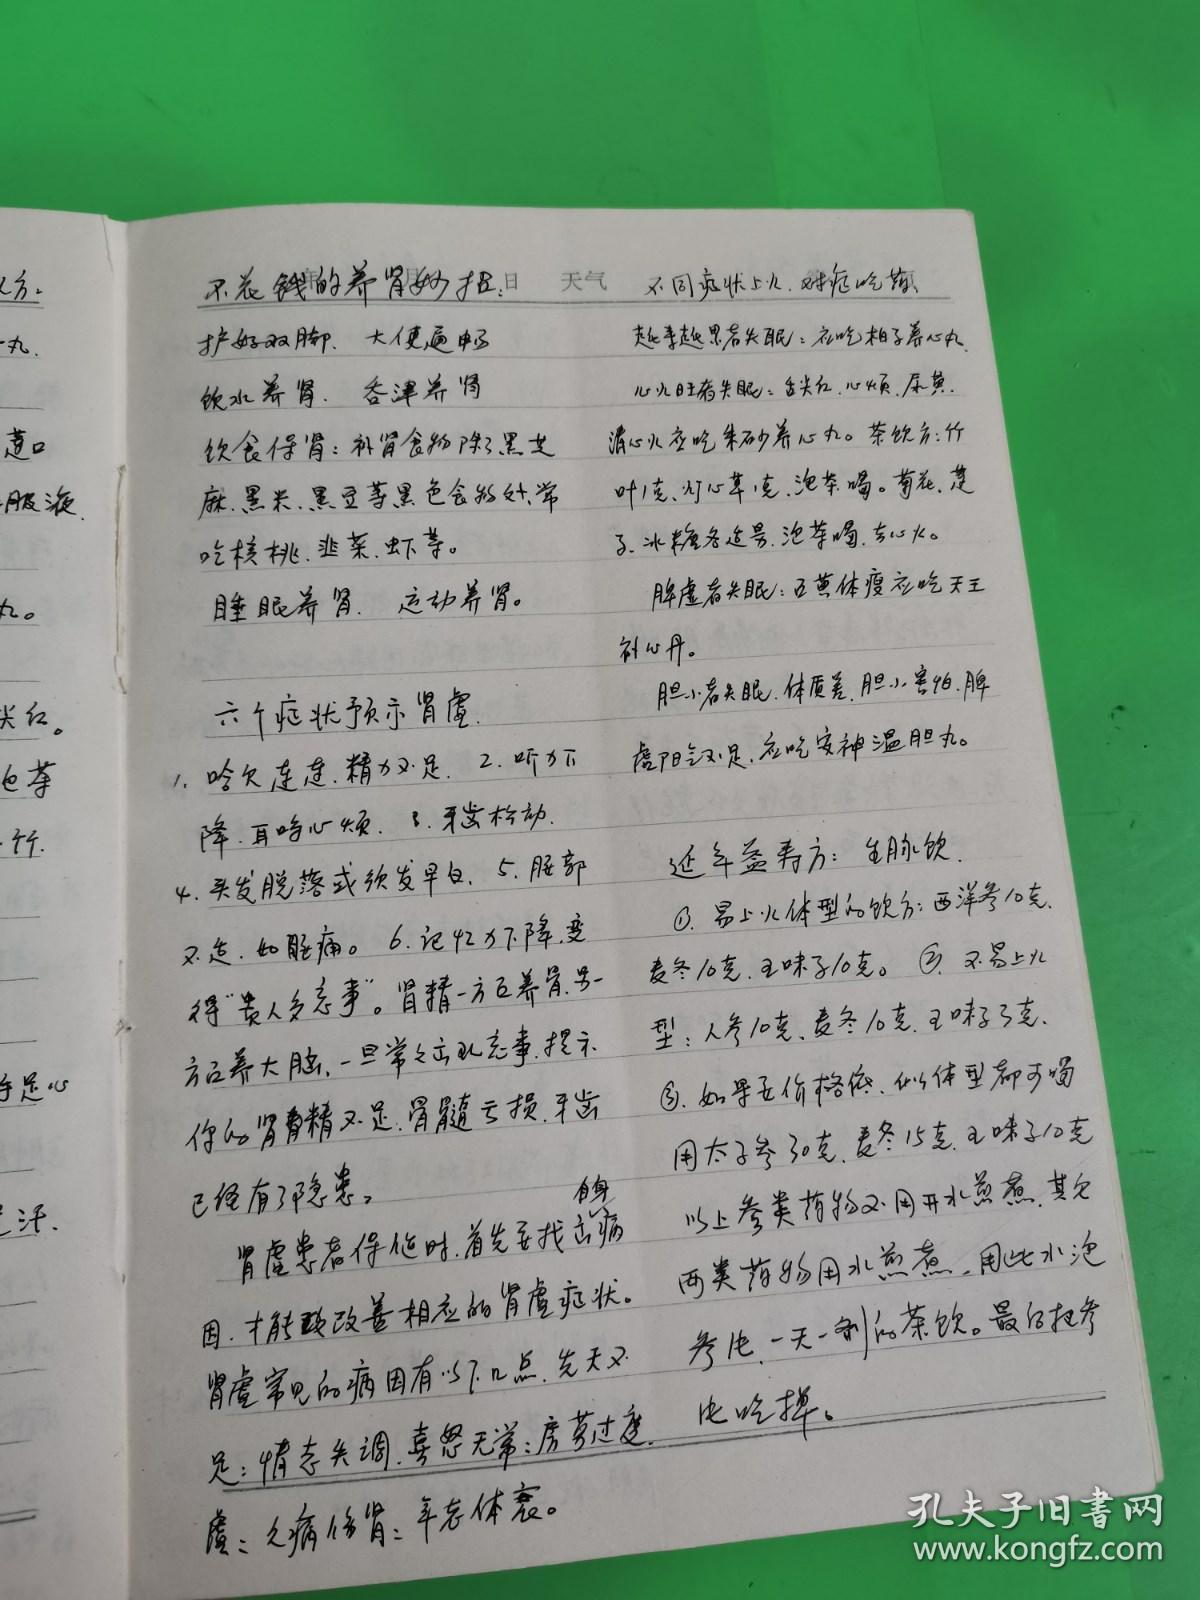 方:
丸.
服液.
丸。
尖红。
泡茶
竹.
手足心
汗.
年 月 日 天气
不花钱的养肾妙招:
护好双脚、大便通畅
饮水养肾、吞津养肾
饮食保肾:补肾食物除了黑芝
麻、黑米、黑豆等黑色食物外、常
吃核桃、韭菜、虾等。
睡眠养肾、运动养肾。
六个症状预示肾虚.
1、哈欠连连、精力不足、2、听力下
降、耳鸣心烦、3、牙齿松动、
4、头发脱落或须发早白、5、腰部
不适、如腰痛。6、记忆力下降、变
得"贵人多忘事"。肾精一方面养骨、另一
方面养大脑、一旦常常出现忘事、提示
你的肾精不足、骨髓亏损、牙齿
已经有了隐患。
肾虚患者保健时、首先要找出自身病
因、才能改善相应的肾虚症状。
肾虚常见的病因有以下几点、先天不
足;情志失调、喜怒无常;房劳过度
虚;久病伤肾;年老体衰。
不同症状上火、对症吃药、
越来越累者失眠:应吃柏子养心丸.
心火旺者失眠:舌尖红、心烦、尿黄.
清心火应吃朱砂养心丸。茶饮方:竹
叶1克、灯心草1克、泡茶喝。菊花、莲
子、冰糖各适量、泡茶喝、去心火。
脾虚者失眠:面黄体瘦应吃天王
补心丹。
胆小者失眠、体质差、胆小害怕、脾
虚阳气不足、应吃安神温胆丸。
延年益寿方:生脉饮.
①、易上火体型的饮方:西洋参10克、
麦冬10克、五味子10克。②、不易上火
型:人参10克、麦冬10克、五味子5克、
③、如果要价格低、什么体型都可喝
用太子参30克、麦冬15克、五味子10克
以上参类药物不用开水煎煮、其它
两类药物用水煎煮、用此水泡
参吃、一天一剂的茶饮。最后把参
也吃掉。
孔夫子旧书网
www.kongfz.com